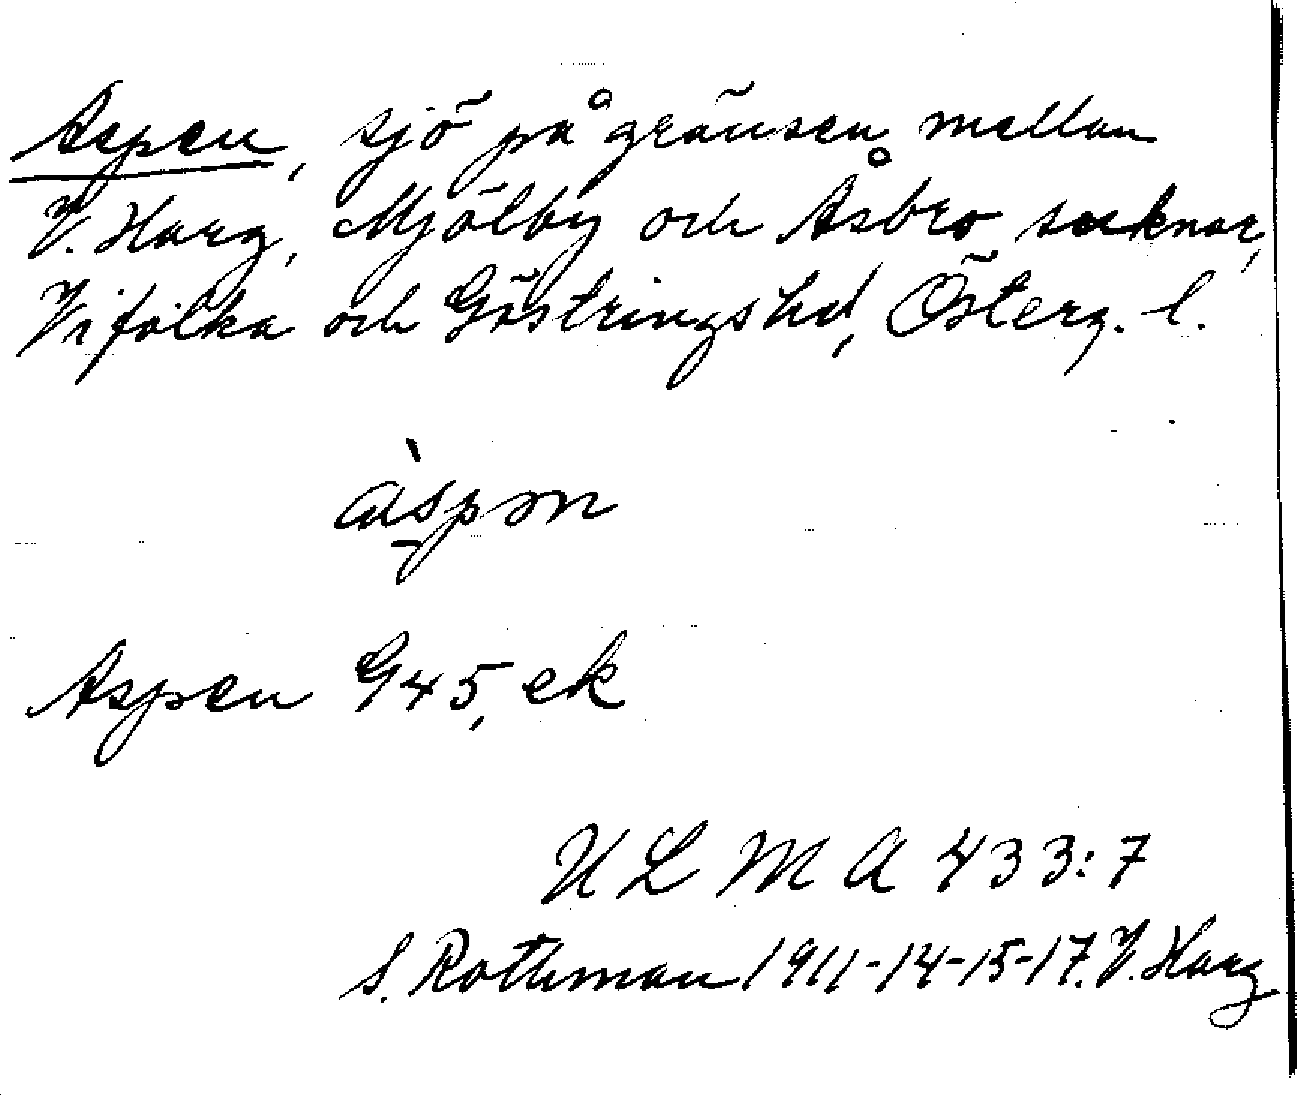 Aspen, sjö på gränsen mellan
V. Harg, Mjölby och Åsbro socknar,
Vifolka och Göstrings hd, Österg. l.
àspən
Aspen G45, ek
ULMA 433:7
S. Rothman 1911-14-15-17. V. Harg